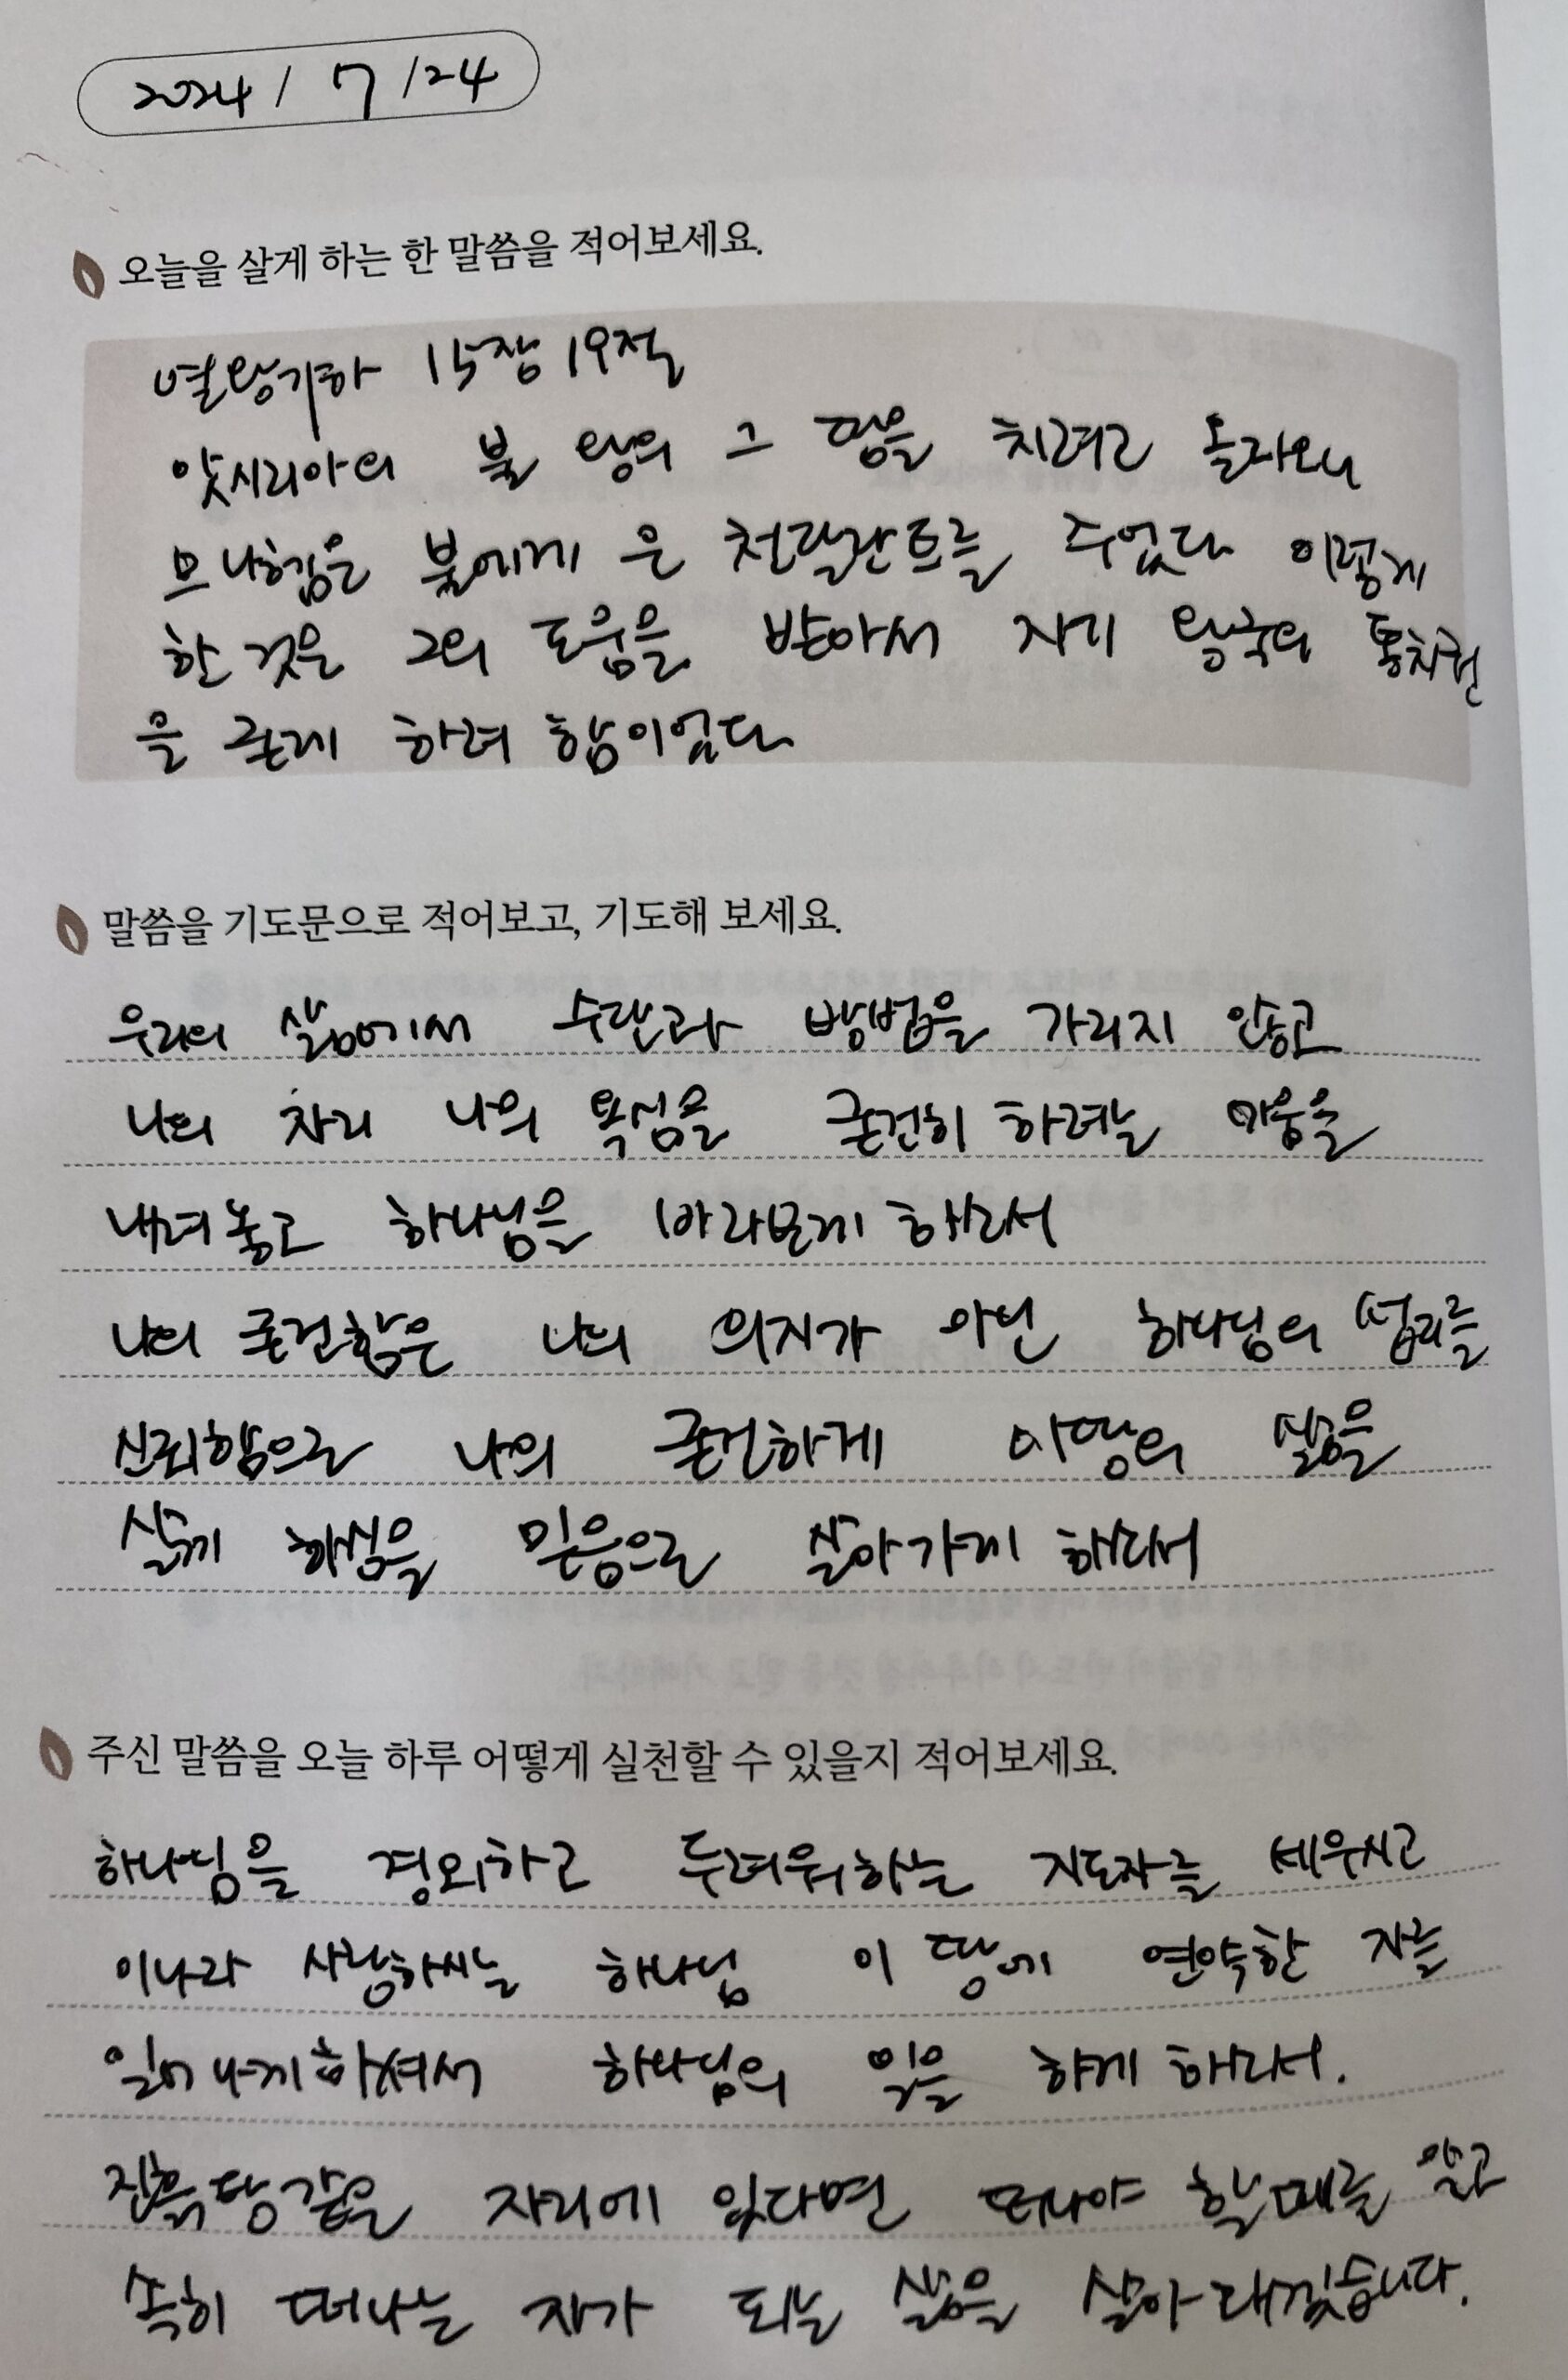 2024 / 7 / 24
오늘을 살게 하는 한 말씀을 적어보세요.
열왕기하 15장 19절
앗시리아의 불 왕의 그 땅을 치려고 올라오니
므나헴은 불에게 은 천달란트를 주었다 이렇게
한 것은 그의 도움을 받아서 자기 왕국의 통치권
을 굳게 하려 함이었다
말씀을 기도문으로 적어보고, 기도해 보세요.
우리의 삶에서 수단과 방법을 가리지 않고
나의 자리 나의 욕심을 굳건히 하려는 마음을
내려놓고 하나님을 바라보게 하소서
나의 굳건함은 나의 의지가 아닌 하나님의 섭리를
신뢰함으로 나의 굳건하게 이땅의 삶을
살게 하심을 믿음으로 살아가게 하소서
주신 말씀을 오늘 하루 어떻게 실천할 수 있을지 적어보세요.
하나님을 경외하고 두려워하는 지도자를 세우시고
이나라 사랑하시는 하나님 이 땅에 연약한 자를
일어나게하셔서 하나님의 일을 하게 하소서.
진흙탕같은 자리에 있다면 떠나야 할때를 알고
속히 떠나는 자가 되는 삶을 살아내겠습니다.